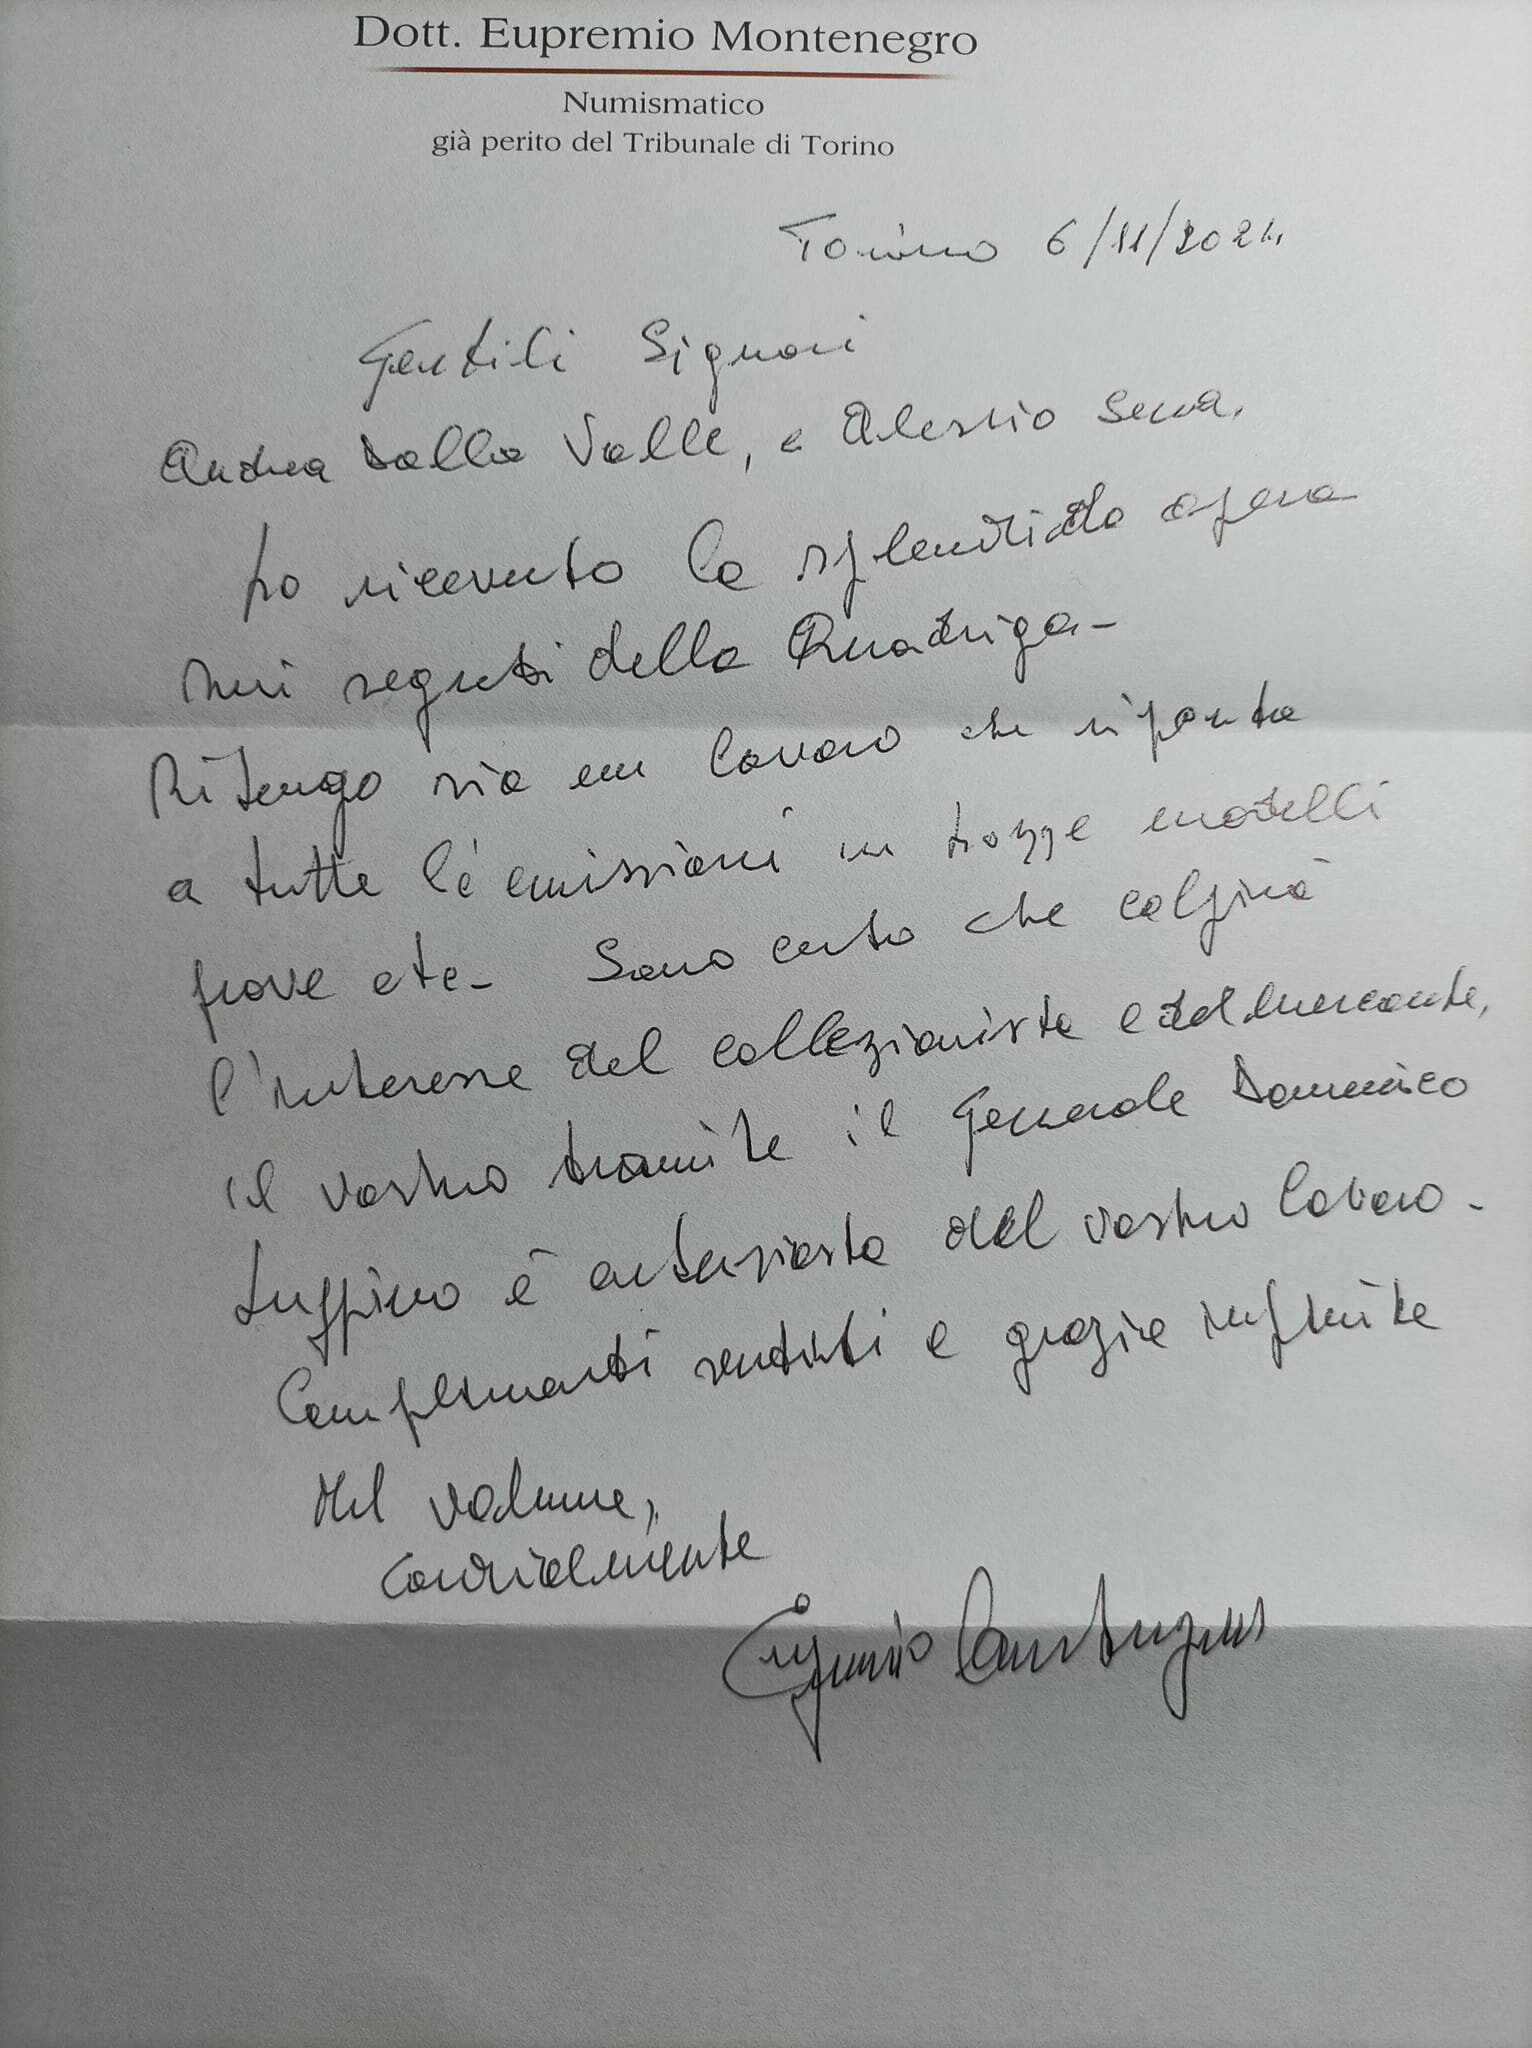 Dott. Eupremio Montenegro
Numismatico
già perito del Tribunale di Torino
Torino 6/11/2021.
Gentili Signori
Andrea Dalla Valle, e Alessio Sena.
ho ricevuto la splendida opera
sui segreti della Quadriga-
Ritengo sia un lavoro che riporta
a tutte le emissioni in tozze modelli
prove etc- Sono certo che colpirà
l'interesse del collezionista e del mercante,
il vostro tramite il Generale Domenico
Luppino è entusiasta del vostro lavoro-
Complimenti sentiti e grazie infinite
del volume,
cordialmente